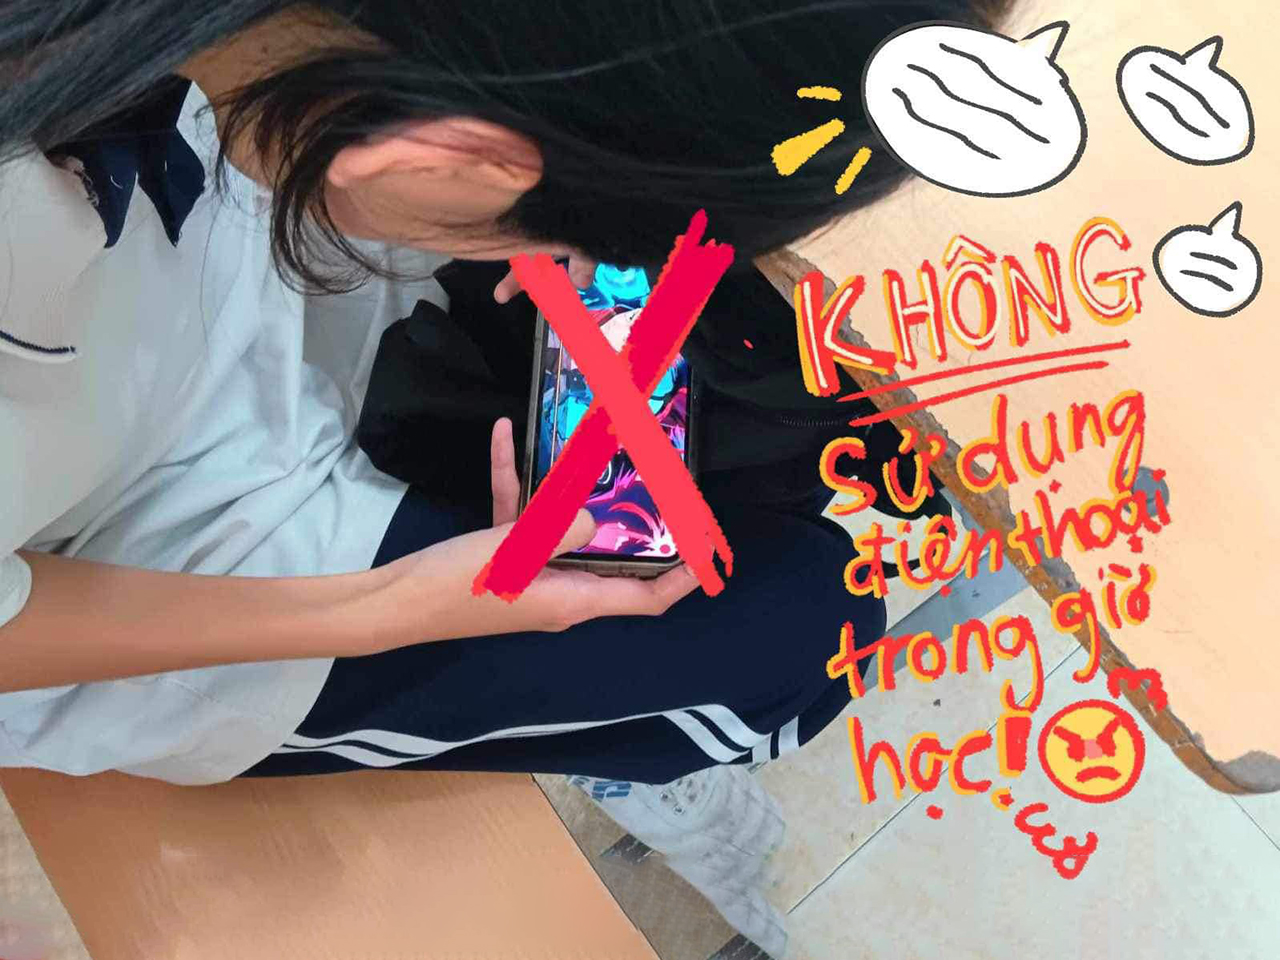 KHÔNG
Sử dụng
điện thoại
trong giờ
học!